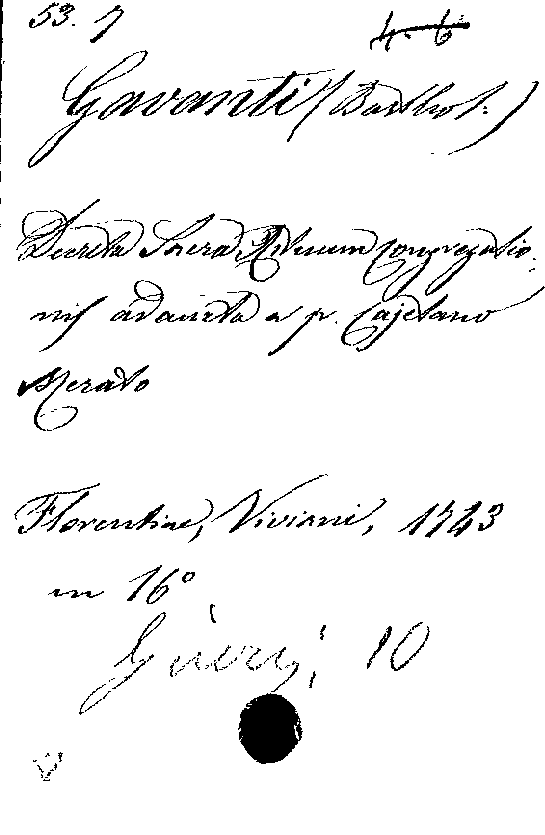 53. 7
4. 6
Gavanti (Barthol:)
Decreta Sacra Rituum Congregatio
nis adaucta a p. Cajetano
Merato
Florentiae, Viviani, 1743
in 16°
10